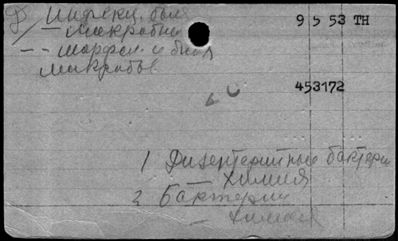 Инфекц. бол
9 5 53 ТН
— микробио
-- морфол. и биол
микробы.
453172
1 Дизентерийные бактерии
— химия
2 Бактерии
— химия